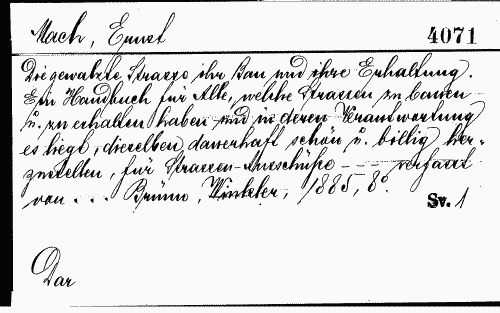 Mach, Ernst
4071
Die gewalzte Strasse ihr Bau und ihre Erhaltung.
Ein Handbuch für Alle, welche Strassen zu bauen
u. zu erhalten haben und in deren Verantwortung
es liegt, dieselben dauerhaft schön u. billig her-
zustellen, für Strassen-Ausschüsse - - - verfasst
von . . . Brünn, Winkler, 1885, 8°.
Sv. 1
Dar